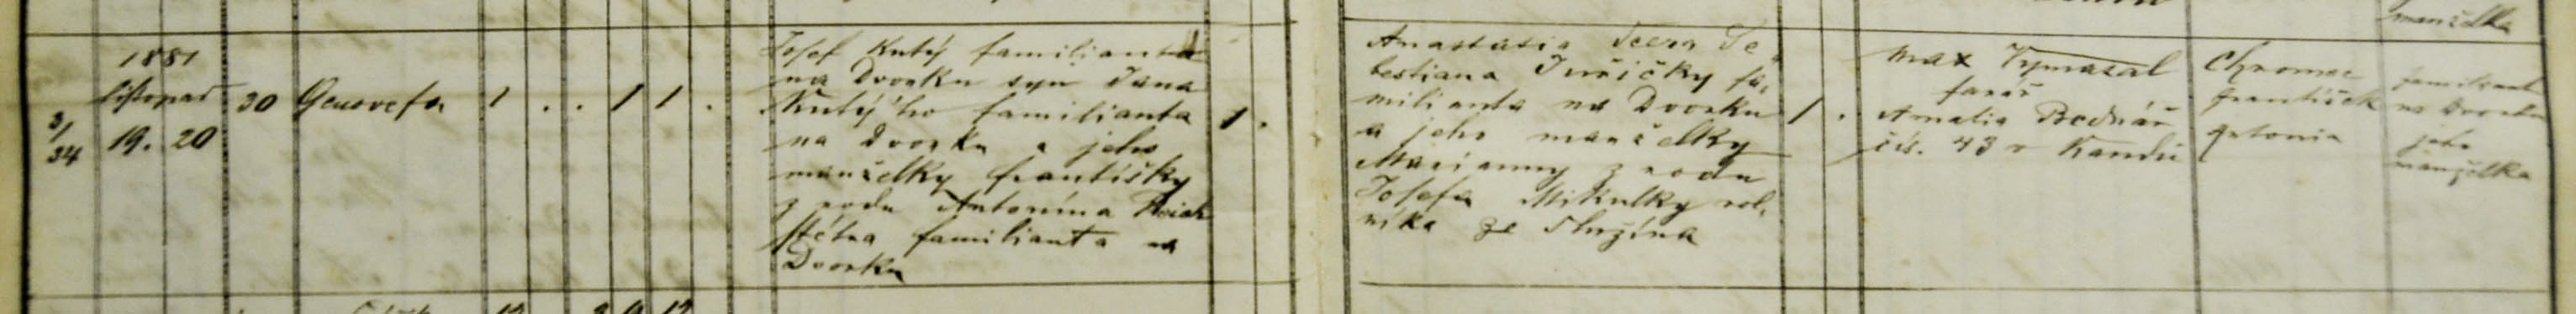 manželka
1881
listopad
19. 20
3/34
30 Genovefa 1 . . 1 1 .
Josef Kutý familianta
na Dvorku syn Jana
Kutýho familianta
na Dvorku a jeho
manželky Františky
z rodu Antonína
familianta na
Dvorku
1 .
Anastásia dcera Še
bestiana Juřičky fa,
milianta na Dvorku
a jeho manželky
Marianny z rodu
Josefa Mikulky rol,
níka ze Služína
1 .
Max Vymazal
farář
Amalia Bednář
čís. 43 v
Chromec
František
Antonia
familiant
na Dvorku
jeho
manželka